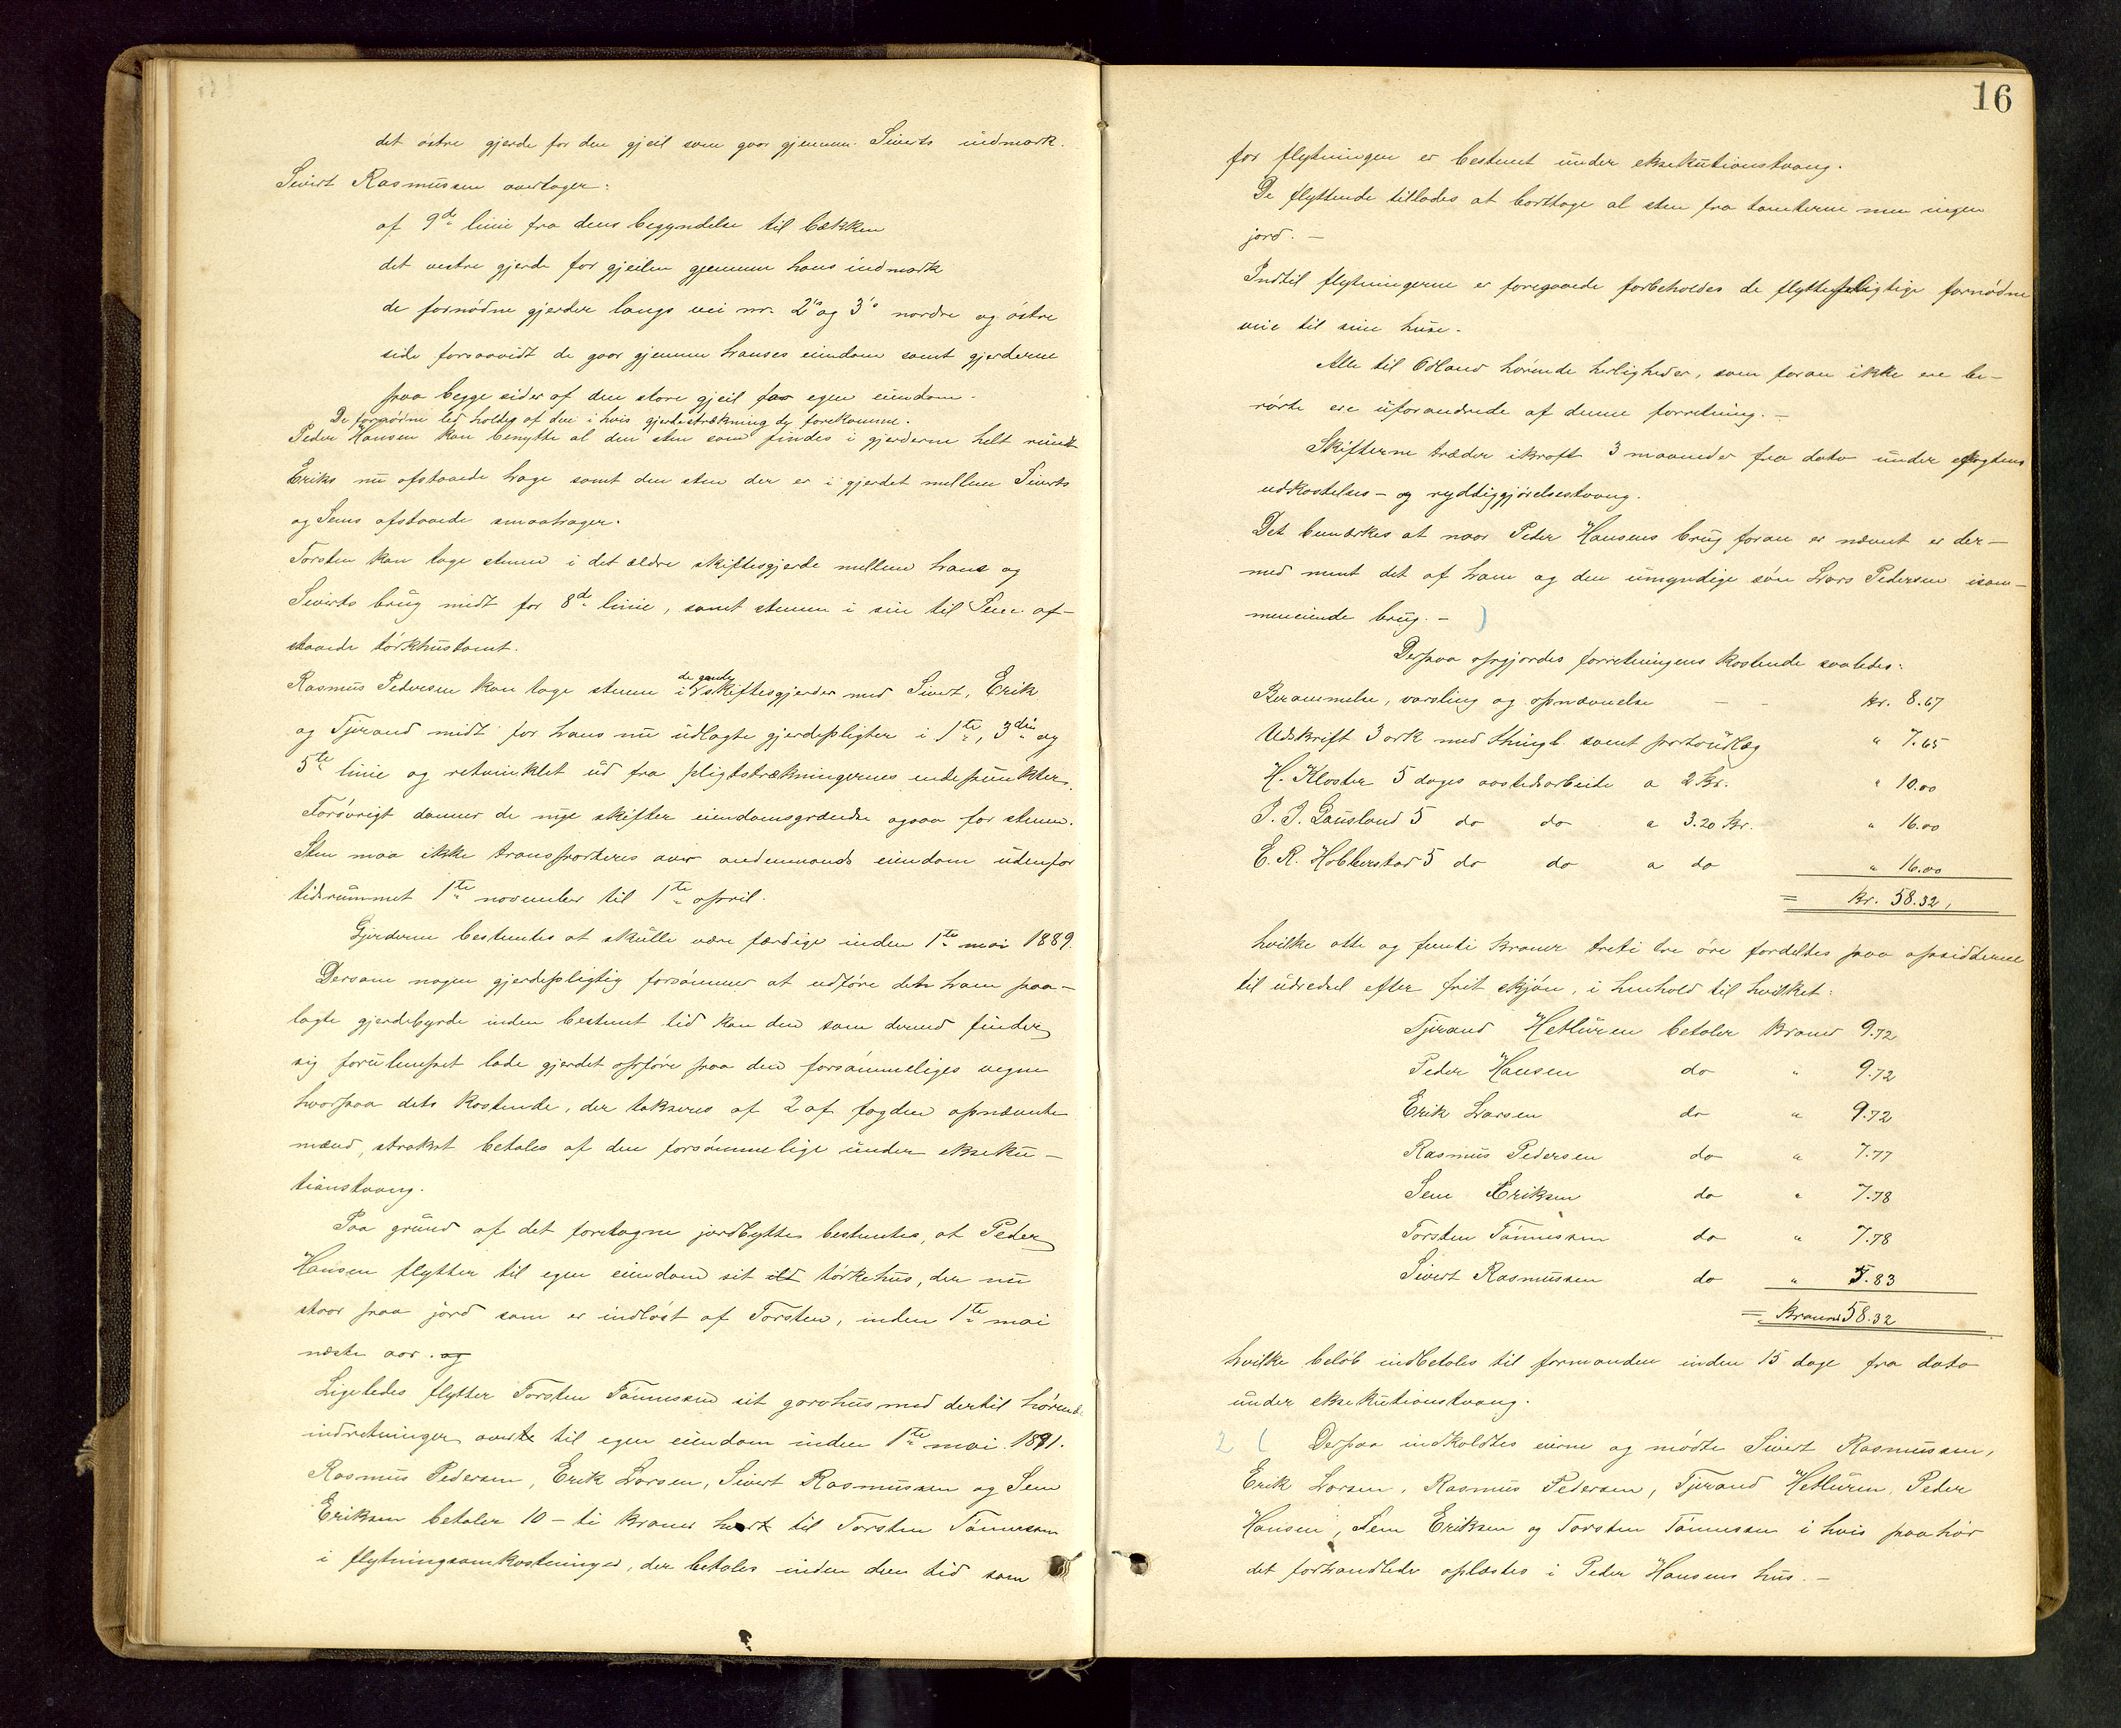 det østre gjerde for den gjeil som gaar gjennem Siverts indmark.
Sivert Rasmussen overtager:
af 9de linie fra dens begyndelse til bækken
det vestre gjerde for gjeilen gjennem hans indmark
de fornødne gjerder langs vei nr. 2 og 3 nordre og østre
side forsaavidt de gaar gjennem hanses eiendom samt gjerderne
paa begge sider af den store gjeil for egen eiendom.
De fornødne led holdes af den i hvis gjerdestrækning de forekomme.
Peder Hansen kan benytte al den sten som findes i gjerderne helt rundt
Eriks nu afstaaede hage samt den sten der er i gjerdet mellem Siverts
og Sems afstaaede smaahager.
Torsten kan tage stenen i det ældre skiftesgjerde mellem hans og
Siverts brug midt for 8de linie, samt stenen i sin til Sem af-
staaede tørkhustomt.
Rasmus Pedersen kan tage stenen i de gamle skiftesgjerder med Sivert, Erik
og Tjerand midt for hans nu udlagte gjerdepligter i 1te, 3die og
5te linie og retvinklet ud fra pligtstrækningernes endepunkter.
Forøvrigt danner de nye skifter eiendomsgrændse ogsaa for stenen.
Sten maa ikke transporteres over andenmands eiendom udenfor
tidsrummet 1te november til 1te april.
Gjerderne bestemtes at skulle være færdige inden 1te mai 1889.
Dersom nogen gjerdepligtig forsømmer at udføre den ham paa-
lagte gjerdebyrde inden bestemt tid kan den som derved finder
sig forulempet lade gjerdet opføre paa den forsømmeliges vegne
hvorpaa dets kostende, der takseres af 2 af fogden opnævnte
mænd, strakst betales af den forsømmelige under ekseku-
tionstvang.
Paa grund af det foretagne jordbytte bestemtes, at Peder
Hansen flytter til egen eiendom sit ild tørkehus, der nu
staar paa jord som er indløst af Torsten, inden 1te mai
næste aar. og
Ligeledes flytter Torsten Tønnessen sit gaardhus med dertil hørende
indretninger over til egen eiendom inden 1te mai 1891.
Rasmus Pedersen, Erik Larsen, Sivert Rasmussen og Sem
Eriksen betaler 10 - ti kroner hver til Torsten Tønnessen
i flytningsomkostninger, der betales inden den tid som
16
for flytningen er bestemt under eksekutionstvang.
De flyttende tillades at borttage al sten fra tomterne men ingen
jord. -
Indtil flytningerne er foregaaede forbeholdes de flyttepligtige fornødne
veie til sine huse.
Alle til Odland hørende herligheder, som foran ikke ere be-
rørte ere uforandrede af denne forretning. -
Skifterne træder ikraft 3 maaneder fra dato under
udkastelses - og ryddiggjørelsestvang.
Det bemærkes at naar Peder Hansens brug foran er nævnt er der-
med ment det af ham og den umyndige søn Lars Pedersen isam-
meneiende brug. - )
Derpaa opgjordes forretningens kostende saaledes:
Berammelse, varsling og opnævnelse - - kr. 8.67
Udskrift 3 ark med thingl. samt portoudlæg " 7.65
H. Kloster 5 dages aastedsarbeide a 2 kr. " 10.00
J. J. Gausland 5 do do a 3.20 kr. " 16.00
E. R. Hobberstad 5 do do a do " 16.00
= kr. 58.32,
hvilke otte og femti kroner treti to øre fordeltes paa opsidderne
til udredsel efter frit skjøn, i henhold til hvilket:
Tjerand Hetluren betaler kroner 9.72
Peder Hansen do " 9.72
Erik Larsen do " 9.72
Rasmus Pedersen do " 7.77
Sem Eriksen do " 7.78
Torsten Tønnessen do " 7.78
Sivert Rasmussen do " 5.83
= Kroner 58.32
hvilke beløb indbetales til formanden inden 15 dage fra dato
under eksekutionstvang.
2 ( Derpaa indkaldtes eierne og mødte Sivert Rasmussen,
Erik Larsen, Rasmus Pedersen, Tjerand Hetluren, Peder
Hansen, Sem Eriksen og Torsten Tønnessen i hvis paahør
det forhandlede oplæstes i Peder Hansens hus. -